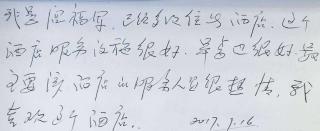 我是应福军,已经多次住此酒店,这个
酒店服务设施很好,早餐也很好,最
主要该酒店的服务人员很热情,我
喜欢这个酒店。
2017.7.16.